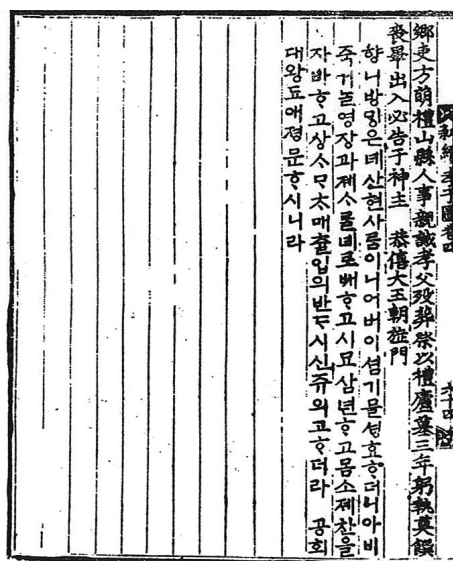 新續孝子圖卷四 六十四
鄕吏方萌禮山縣人事親誠孝父歿葬祭以禮廬墓三年躬執奠饌
喪畢出入必告于神主 恭僖大王朝旌門
향니방ᄆᆡᆼ은녜산현사ᄅᆞᆷ이니어버이셤기믈셩효ᄒᆞ더니아비
죽거ᄂᆞᆯ영장과졔ᄉᆞᄅᆞᆯ녜로ᄡᅥᄒᆞ고시묘삼년ᄒᆞ고몸소졔찬을
자바ᄒᆞ고상ᄉᆞᄆᆞᄎᆞ매츌입의반ᄃᆞ시신쥬ᄭᅴ고ᄒᆞ더라 공희
대왕됴애졍문ᄒᆞ시니라